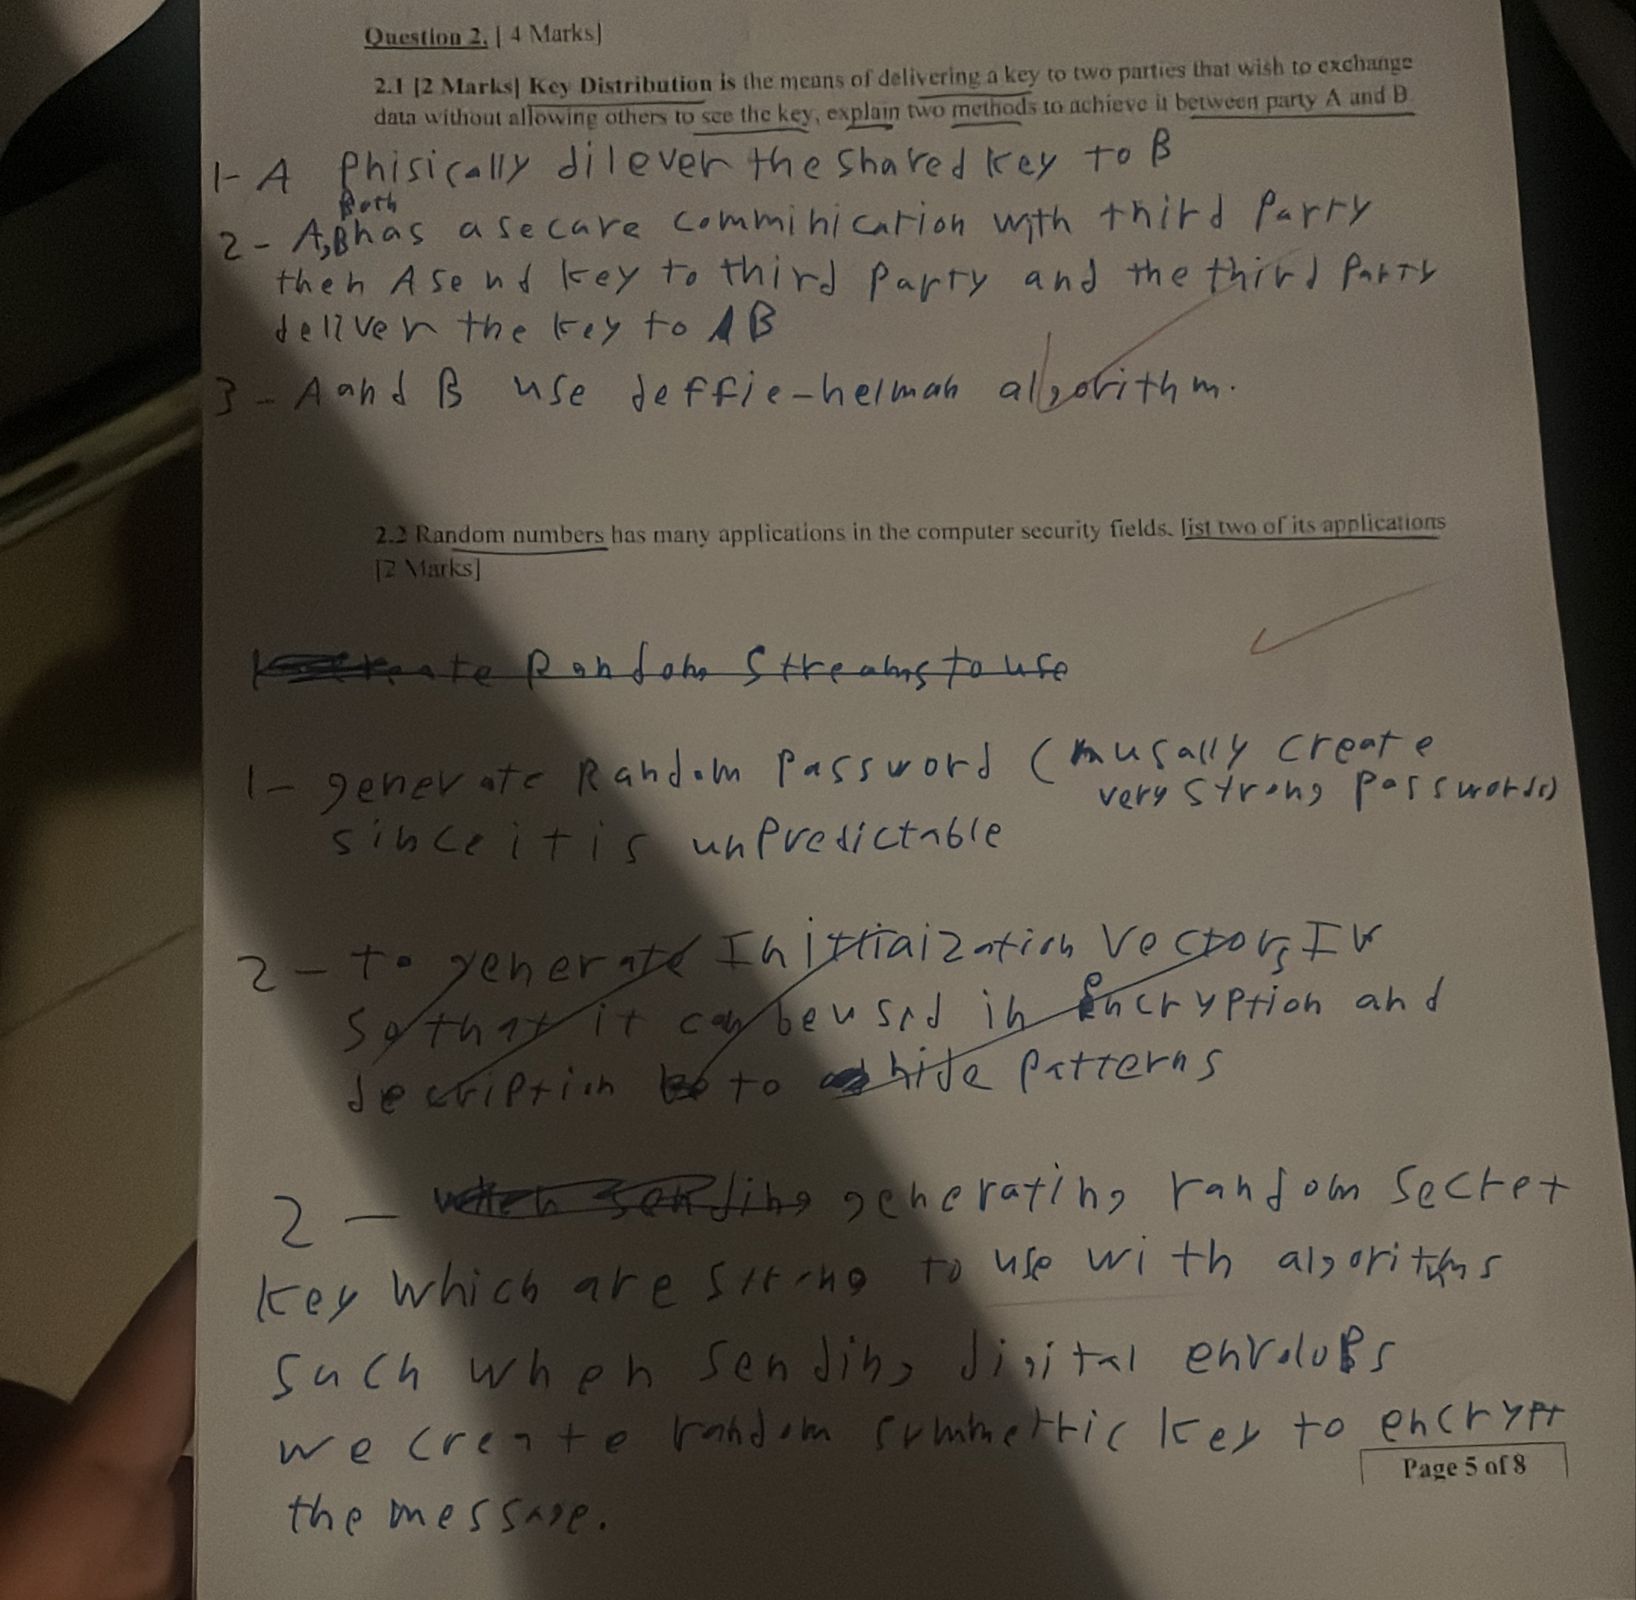 Question 2. [ 4 Marks]
2.1 [2 Marks] Key Distribution is the means of delivering a key to two parties that wish to exchange
data without allowing others to see the key, explain two methods to achieve it between party A and B
1- A Phisically dilever the shared key to B
Both
2- A,B has a secure comminication with third Party
then A send key to third Party and the third Party
deliver the key to B
3- A and B use deffie-helman algorithm.
2.2 Random numbers has many applications in the computer security fields. list two of its applications
[2 Marks]
Random Streams to use
1- generate Random Password ( usally create
very strong passwords)
since it is unpredictable
2- to generate Initiaization Vectors IV
so that it can be used in Encryption and
decription to hide patterns
2- when sending generating random secret
key which are strong to use with algorithms
such when sending digital envelops
we create random symmetric key to encrypt
Page 5 of 8
the message.